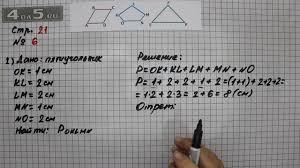 4 on 5.ru
Стр. 21
№ 6
2) Дано: пятиугольник
OK = 1 см
KL = 2 см
LM = 2 см
MN = 1 см
NO = 2 см
Найти: P OKLMN
Решение:
P = OK + KL + LM + MN + NO
P = 1 + 2 + 2 + 1 + 2 = (1+1) + 2+2+2 =
= 1·2 + 2·3 = 2 + 6 = 8 (см)
Ответ: